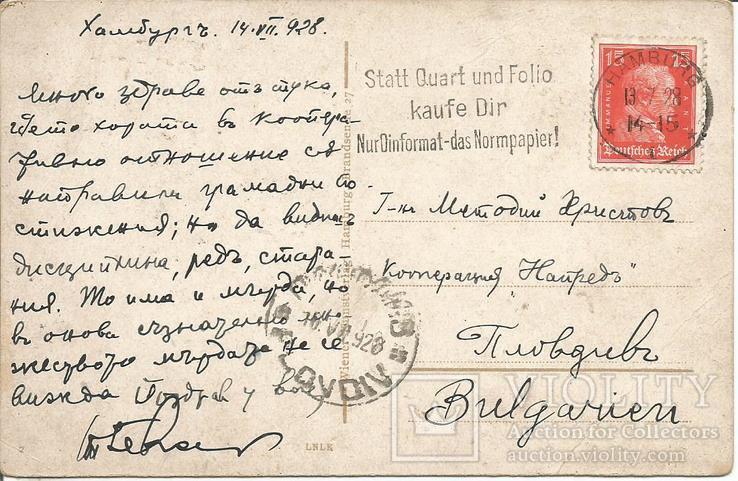 Хамбургъ. 14.VII.928.
Много здраве отъ тука,
гдето хората въ коопера-
тивно отношение сѫ
направили грамадни по-
стижения; но да видишъ
дисциплина, редъ, стара-
ния. То има и мърда, но
въ онова съзнателно мно-
жество мърдата не се
вижда Поздрав
Statt Quart und Folio
kaufe Dir
Nur Dinformat-das Normpapier!
HAMBURG
13.7.28
14-15
15 15
IMMANUEL KANT
Deutsches Reich
Г-нъ Методий Христовъ
Кооперация "Напредъ"
Пловдивъ
Bulgarien
928
LNLK
VIOLITY
Auction for Collectors
auction.violity.com